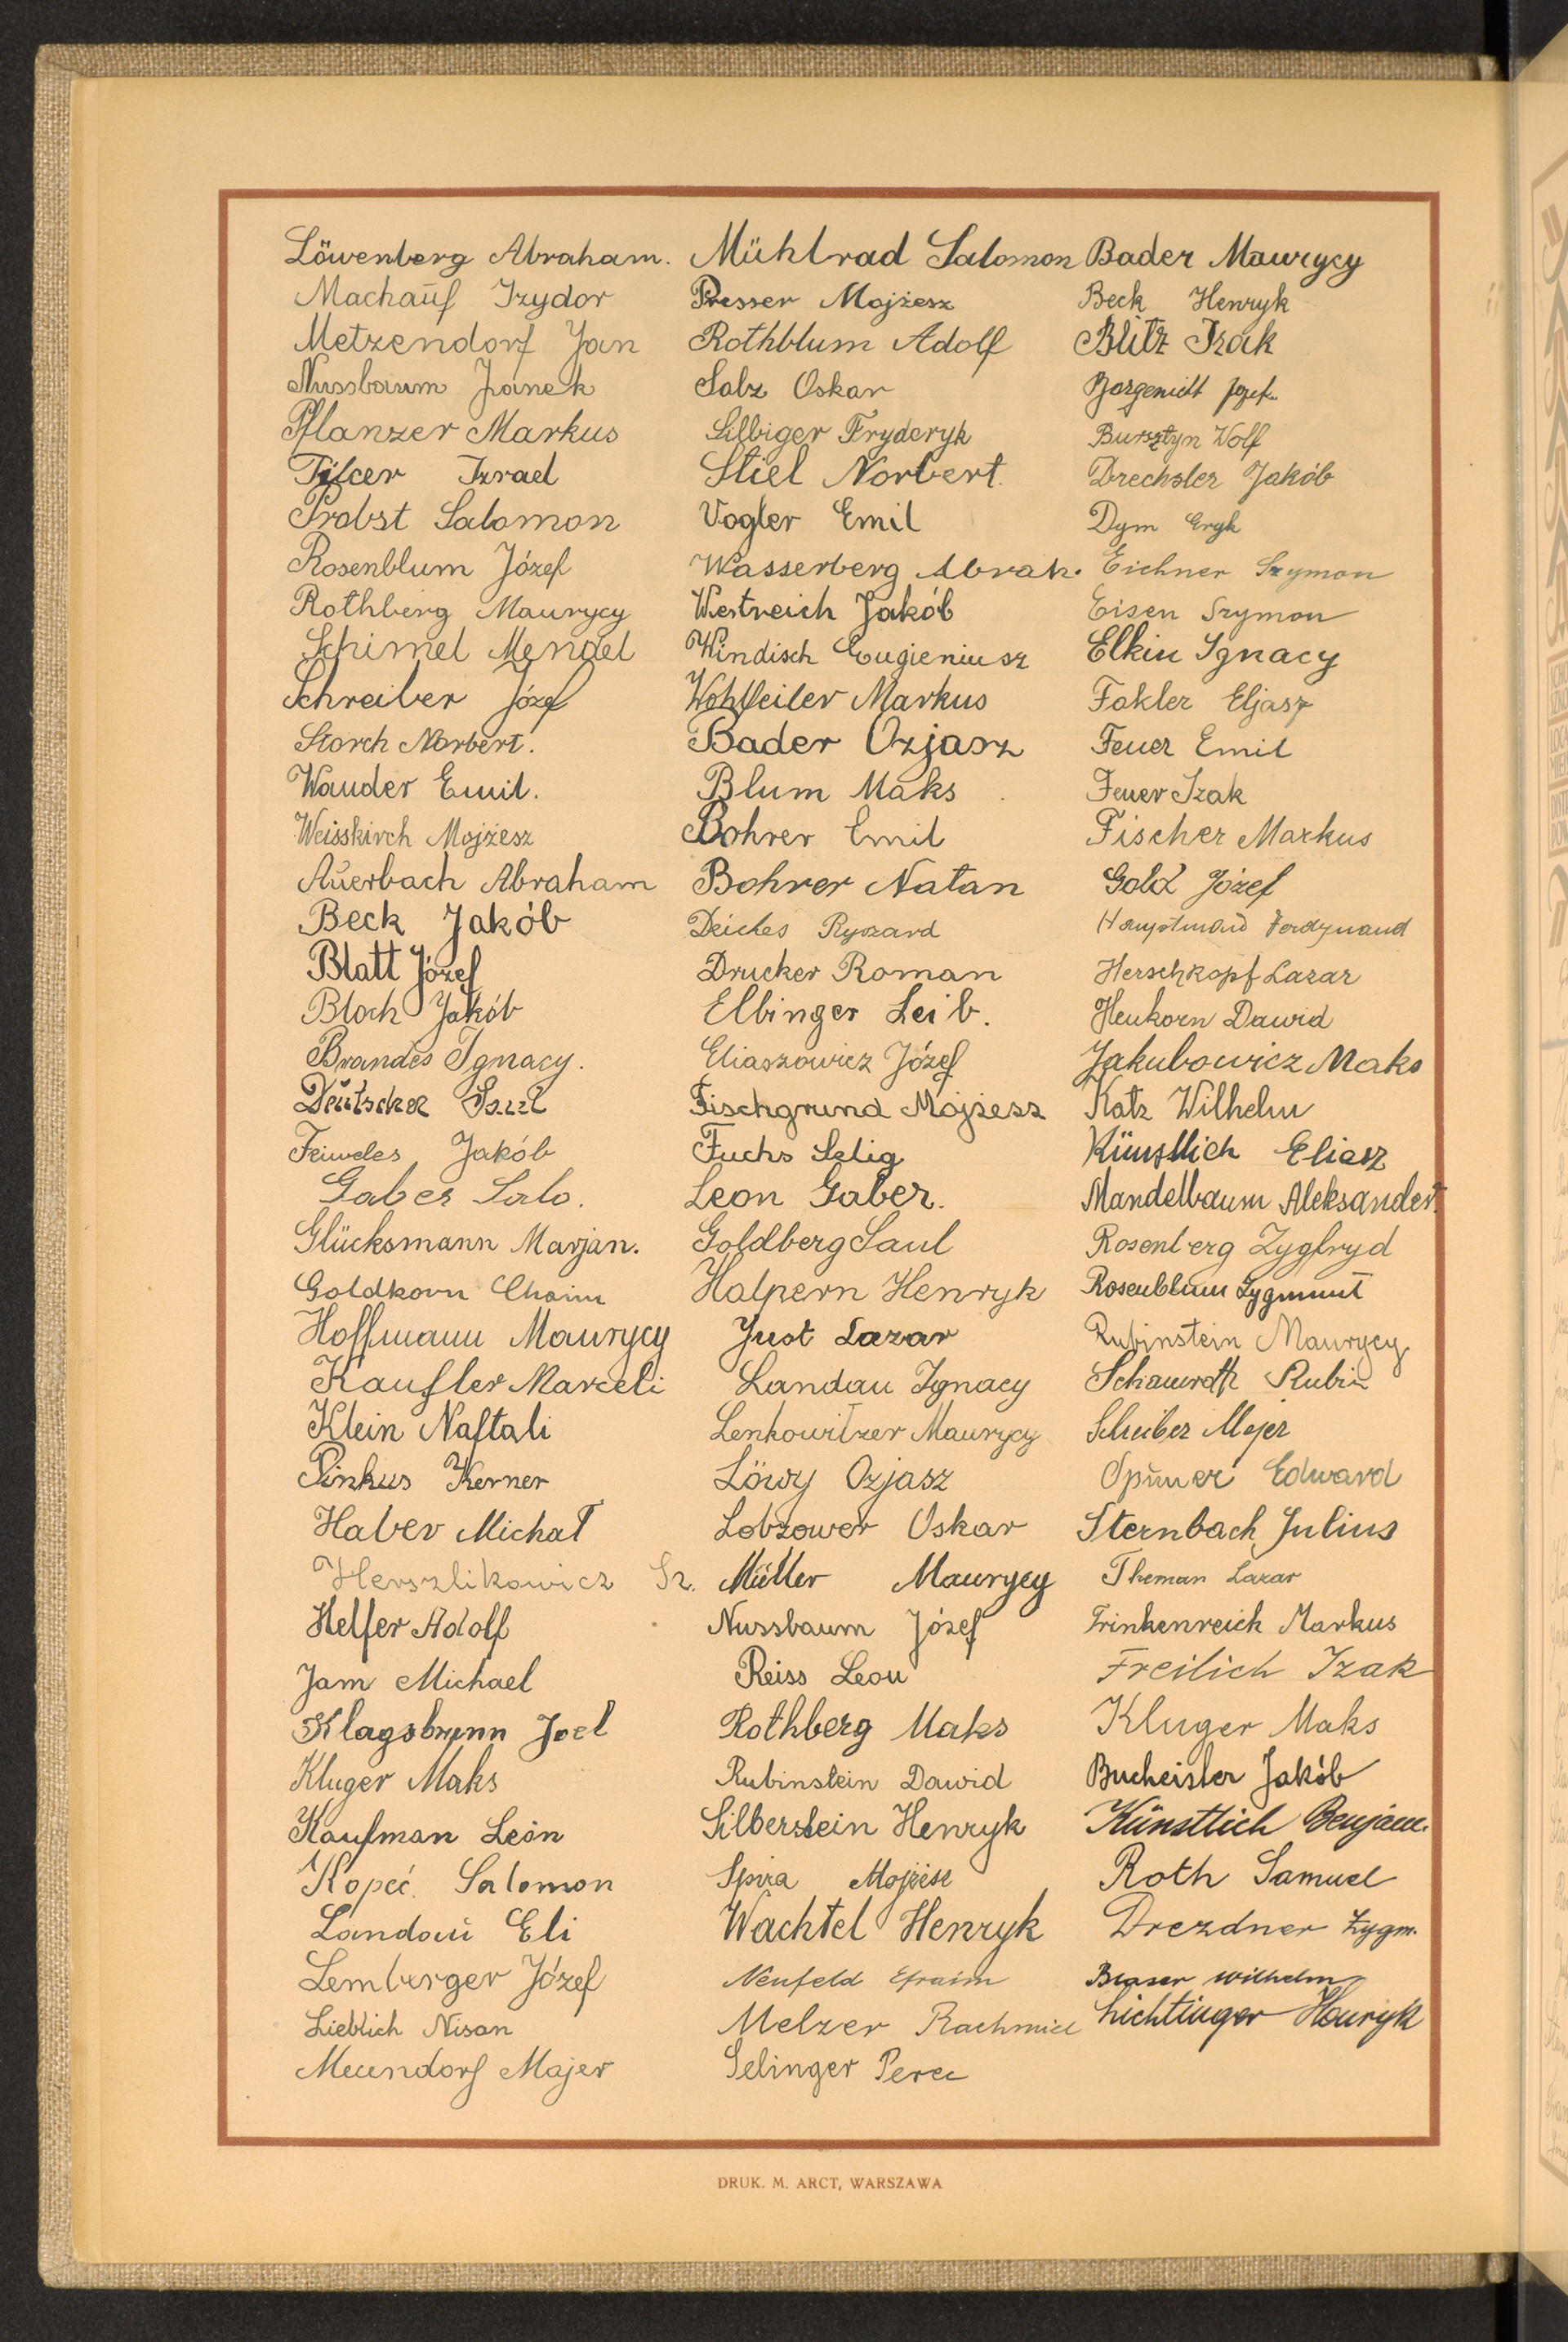 Löwenberg Abraham.
Machauf Izydor
Metzendorf Jan
Nussbaum Janek
Pflanzer Markus
Pilcer Izrael
Probst Salomon
Rosenblum Józef
Rothberg Maurycy
Schimel Mendel
Schreiber Józef
Storch Norbert.
Wander Emil.
Weisskirch Mojżesz
Auerbach Abraham
Beck Jakób
Blatt Józef
Bloch Jakób
Brandes Ignacy.
Deutscher Saul
Feiweles Jakób
Gaber Salo.
Glücksmann Marjan.
Goldkorn Chaim
Hoffmann Maurycy
Kaufler Marceli
Klein Naftali
Pinkus Kerner
Haber Michał
Herszlikowicz Sz.
Helfer Adolf
Jam Michael
Klagsbrunn Joel
Kluger Maks
Kaufman Leon
Kopeć Salomon
Landau Eli
Lemberger Józef
Lieblich Nisan
Majer
Mühlrad Salomon
Presser Mojżesz
Rothblum Adolf
Salz Oskar
Silbiger Fryderyk
Stiel Norbert.
Vogler Emil
Wasserberg Abrah.
Westreich Jakób
Windisch Eugieniusz
Wohlfeiler Markus
Bader Ozjasz
Blum Maks
Bohrer Emil
Bohrer Natan
Deiches Ryszard
Drucker Roman
Elbinger Leib.
Eliaszowicz Józef
Fischgrund Mojżesz
Fuchs Selig
Leon Gaber.
Goldberg Saul
Halpern Henryk
Just Lazar
Landau Ignacy
Lenkowitzer Maurycy
Löwy Ozjasz
Lobzower Oskar
Müller Maurycy
Nussbaum Józef
Reiss Leon
Rothberg Maks
Rubinstein Dawid
Silberstein Henryk
Spira Mojżesz
Wachtel Henryk
Neufeld Efraim
Melzer Rachmiel
Selinger Perec
Bader Maurycy
Beck Henryk
Blitz Izak
Borgenicht Józef.
Bursztyn Wolf
Drechsler Jakób
Dym Eryk
Eichner Szymon
Eisen Szymon
Elkin Ignacy
Fakler Eljasz
Feuer Emil
Feuer Izak
Fischer Markus
Gold Józef
Ferdynand
Herschkopf Lazar
Heukorn Dawid
Jakubowicz Maks
Katz Wilhelm
Künstlich Eliasz
Mandelbaum Aleksander.
Rosenberg Zygfryd
Rosenblum Zygmunt
Rubinstein Maurycy
Rubin
Majer
Edward
Sternbach Julius
Theman Lazar
Trinkenreich Markus
Freilich Izak
Kluger Maks
Bucheister Jakób
Künstlich Benjam.
Roth Samuel
Drezdner Zygm.
Blaser Wilhelm
Lichtinger Henryk
DRUK. M. ARCT, WARSZAWA